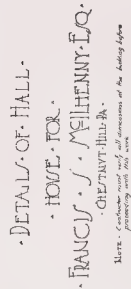 · DETAILS · OF · HALL ·
· HOVSE · FOR ·
· FRANCIS · S · McILHENNY · ESQ ·
· CHESTNVT · HILL · PA ·
NOTE - Contractor must verify all dimensions at the building before
proceeding with this work